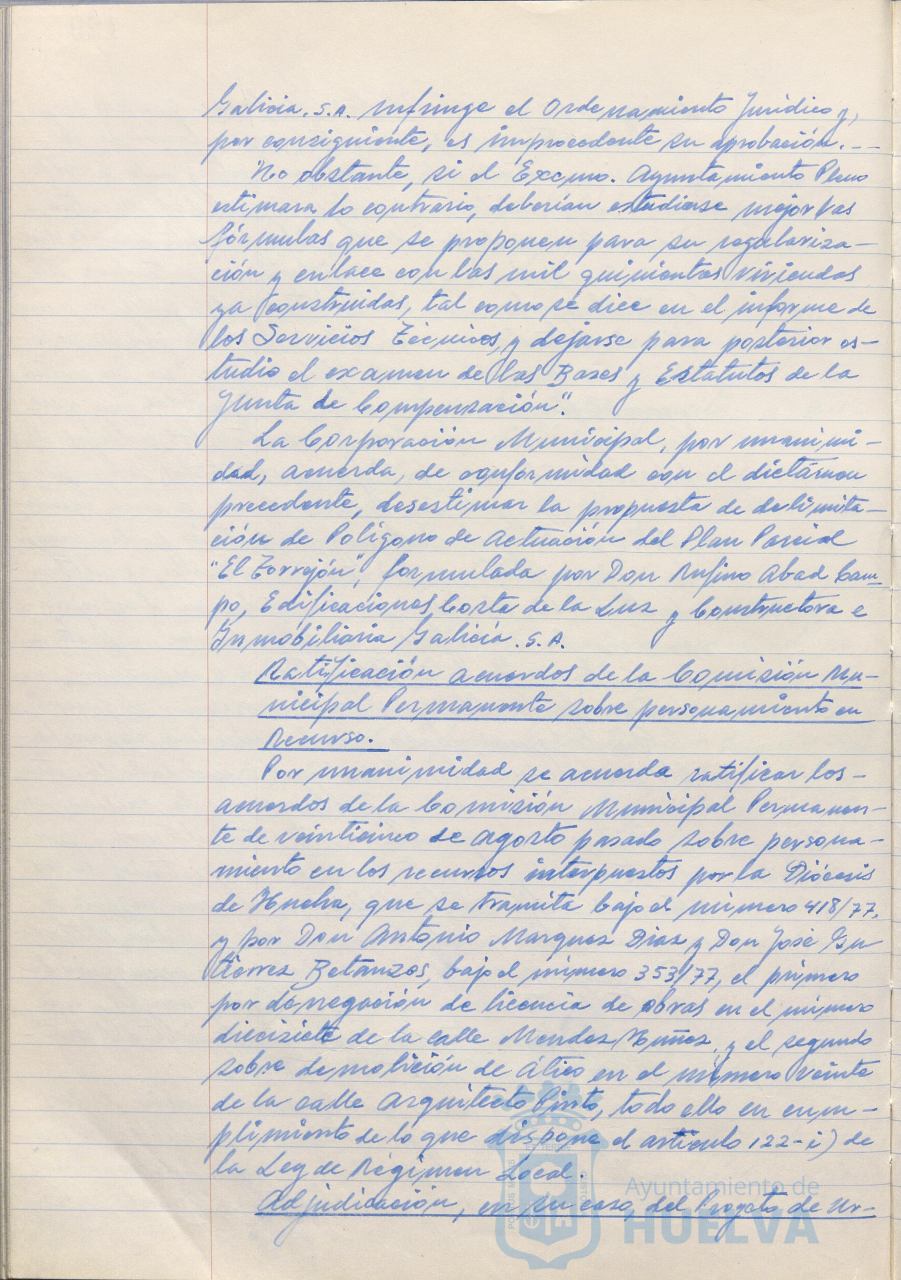 Galicia, S.A. infringe el Ordenamiento Jurídico y,
por consiguiente, es improcedente su aprobación. --
"No obstante, si el Excmo. Ayuntamiento Pleno
estimara lo contrario, deberían estudiarse mejor las
fórmulas que se proponen para su regulariza-
ción y enlace con las mil quinientas viviendas
ya construidas, tal como se dice en el informe de
los Servicios Técnicos, y dejarse para posterior es-
tudio el examen de las Bases y Estatutos de la
Junta de Compensación".
La Corporación Municipal, por unanimi-
dad, acuerda, de conformidad con el dictámen
precedente, desestimar la propuesta de delimita-
ción de Polígono de Actuación del Plan Parcial
"El Torrejón", formulada por Don Rufino Abad Cam-
po, Edificaciones Costa de la Luz y Constructora e
Inmobiliaria Galicia, S.A.
Ratificación acuerdos de la Comisión Mu-
nicipal Permanente sobre personamiento en
Recurso.
Por unanimidad se acuerda ratificar los-
acuerdos de la Comisión Municipal Permanen-
te de veinticinco de agosto pasado sobre persona-
miento en los recursos interpuestos por la Diócesis
de Huelva, que se tramita bajo el número 418/77,
y por Don Antonio Marquez Diaz y Don José Gu
tierrez Betanzos, bajo el número 353/77, el primero
por denegación de licencia de obras en el número
diecisiete de la calle Mendez Nuñez, y el segundo
sobre demolición de ático en el número veinte
de la calle Arquitecto Pinto, todo ello en cum-
plimiento de lo que dispone el artículo 122-i) de
la Ley de Régimen Local.
Adjudicación, en su caso, del Proyecto de Ur-
Ayuntamiento de
HUELVA